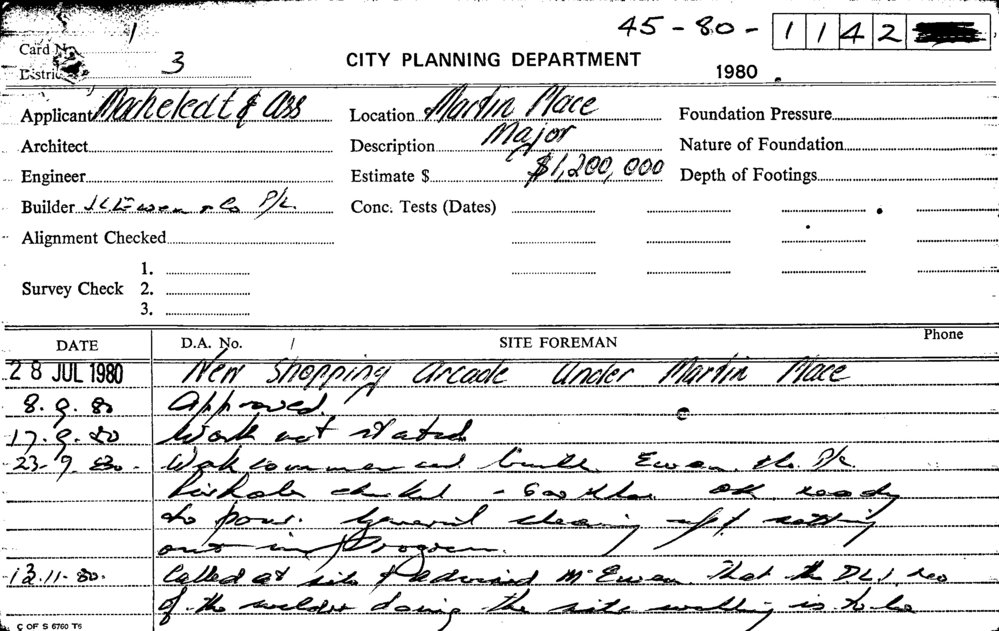 45-80-1142
Card No. 1
District 3
CITY PLANNING DEPARTMENT
1980
Applicant & Ass
Location Martin Place
Foundation Pressure
Architect
Description Major
Nature of Foundation
Engineer
Estimate $ $1,200,000
Depth of Footings
Builder Ewan & Co P/L.
Conc. Tests (Dates)
Alignment Checked
Survey Check
1.
2.
3.
DATE D.A. No. / SITE FOREMAN Phone
28 JUL 1980 New Shopping Arcade Under Martin Place
8.9.80 Approved.
17.9.80 Work not started
23-9-80. Work commenced Ewan & Co. P/L
checked - OK ready
to pour. General cleaning up & setting
out in progress.
13.11.80. Called at site & advised Mr Ewan. That the DLI
of the welder doing the site welding is to be
C OF S 6760 T6